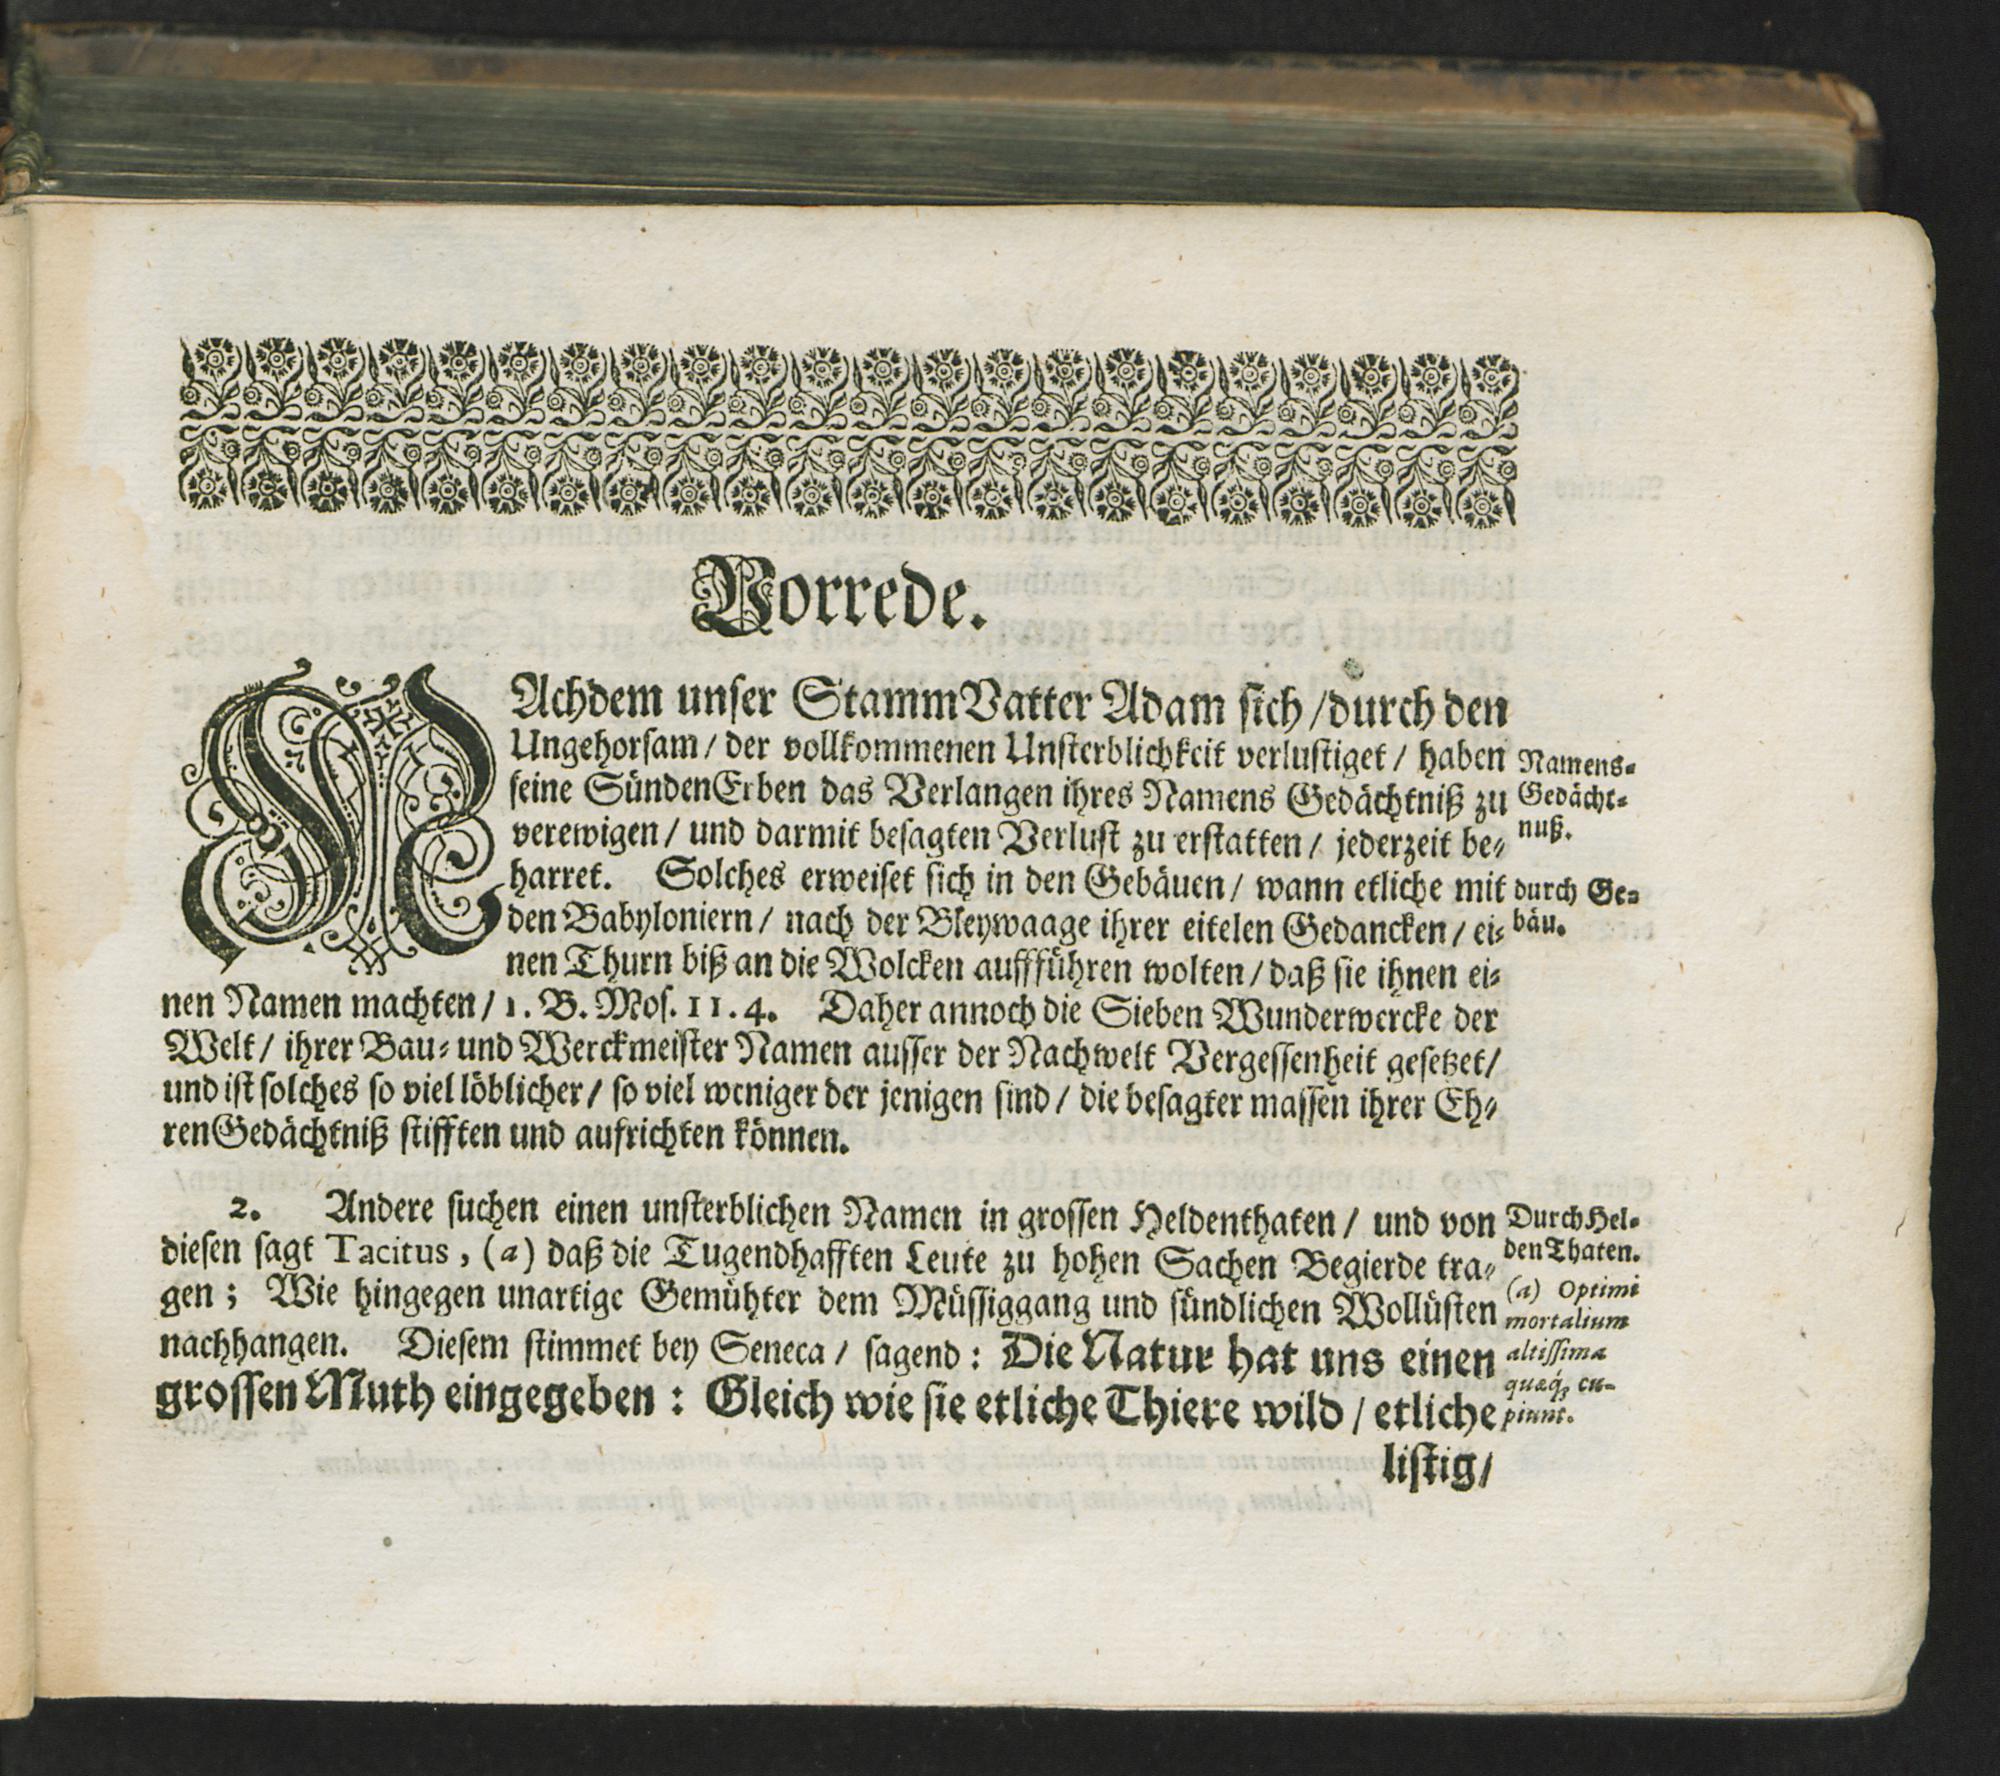 Vorrede.
NAchdem unser StammVatter Adam sich / durch den
Ungehorsam / der vollkommenen Unsterblichkeit verlustiget / haben
seine SündenErben das Verlangen ihres Namens Gedächtniß zu
verewigen / und darmit besagten Verlust zu erstatten / jederzeit be-
harret. Solches erweiset sich in den Gebäuen / wann etliche mit
den Babyloniern / nach der Bleywaage ihrer eitelen Gedancken / ei-
nen Thurn biß an die Wolcken auffführen wolten / daß sie ihnen ei-
nen Namen machten / 1. B. Mos. 11. 4. Daher annoch die Sieben Wunderwercke der
Welt / ihrer Bau- und Werckmeister Namen ausser der Nachwelt Vergessenheit gesetzet /
und ist solches so viel löblicher / so viel weniger der jenigen sind / die besagter massen ihrer Eh-
renGedächtniß stifften und aufrichten können.
Namens-
Gedächt-
nuß.
durch Ge-
bäu.
2. Andere suchen einen unsterblichen Namen in grossen Heldenthaten / und von
diesen sagt Tacitus, (a) daß die Tugendhafften Leute zu hohen Sachen Begierde tra-
gen ; Wie hingegen unartige Gemühter dem Müssiggang und sündlichen Wollüsten
nachhangen. Diesem stimmet bey Seneca / sagend : Die Natur hat uns einen
grossen Muth eingegeben : Gleich wie sie etliche Thiere wild / etliche
listig /
Durch Hel-
den Thaten.
(a) Optimi
mortalium
altissima
quæq; cu-
piunt.